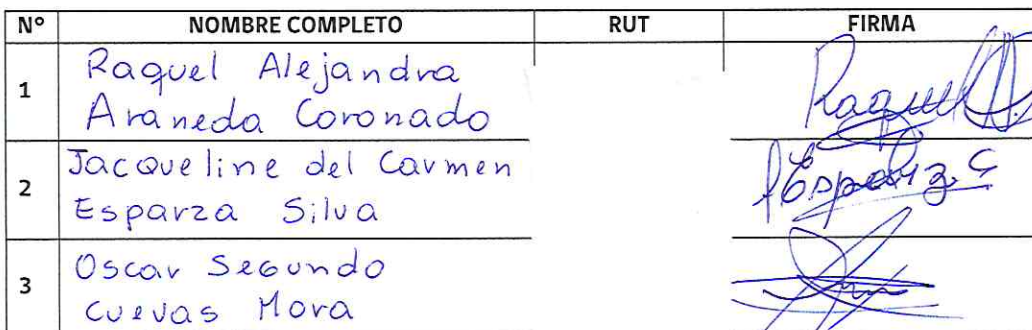 N° NOMBRE COMPLETO RUT FIRMA
1 Raquel Alejandra
Araneda Coronado Raquel
2 Jacqueline del Carmen
Esparza Silva
3 Oscar Segundo
Cuevas Mora